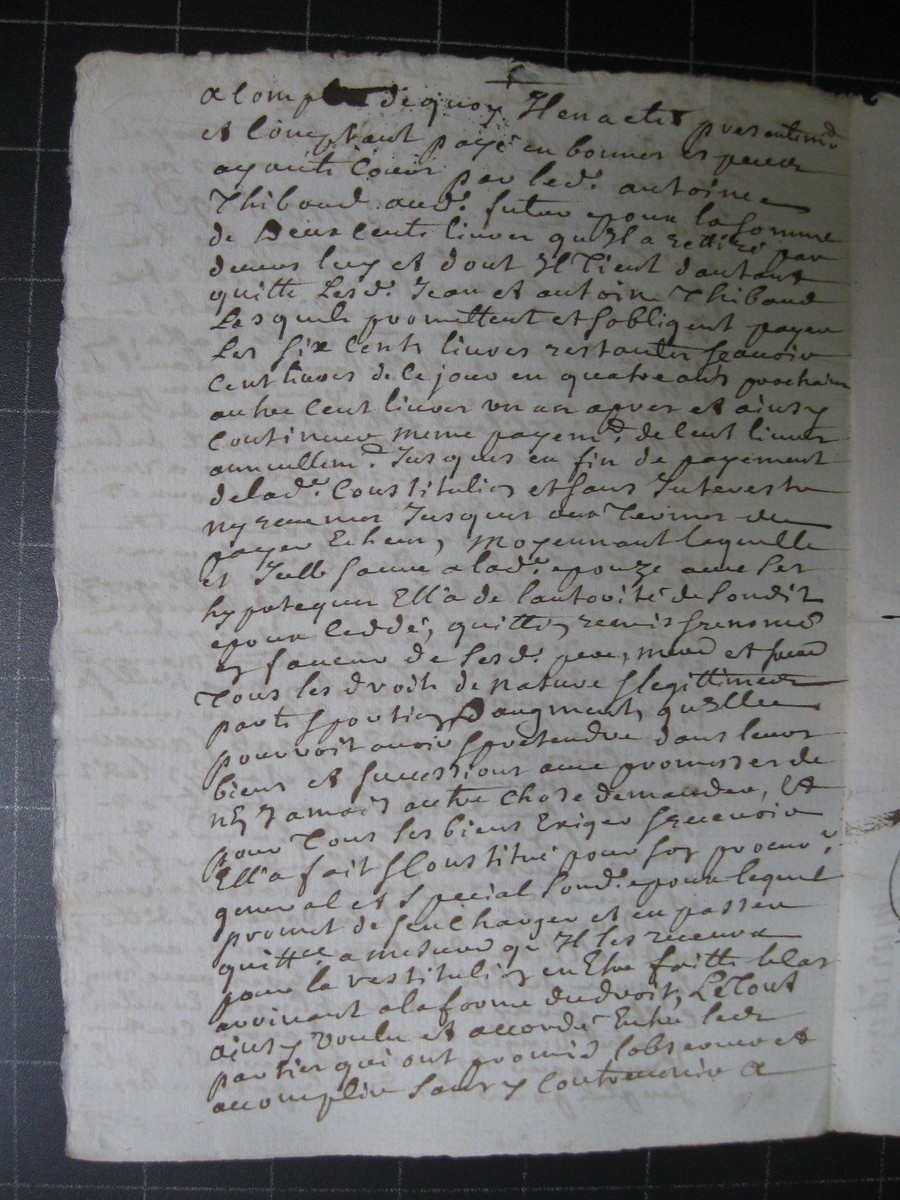 a compte de quoy Il en a eté presentemt
et comptant payé en bonnes especes
ayants cours par led. antoine
Thibaud aud. futur epoux la somme
de Deux cents livres qu'Il a rettiré par
devers luy et dont Il tient d'autant
quitte Lesd. Jean et antoine Thibaud
Lesquels promettent et sobligent payer
Les six cents livres restantes scavoir
cent livres de ce jour en quatre ans prochain
autre cent livres un an apres et ainsy
continuer meme payemt. de cent livres
annuellemt. Jusques en fin de payement
de lad. Constitution et sans Interests
ny Jusques aux termes de
payer Echeus, moyennant laquelle
et Icelle sauve a lad. epouze avec ses
hypoteques Ell'a de l'autorité de sondit
epoux ceddé, quitté, remis & renoncé
en faveur de sesd. pere, mere et frere
Tous les droits de nature & legittime
part & portion D'augment, qu'Elle
pourroit avoir & pretendre dans leurs
biens et successions avec promesses de
n'En Jamais autre chose demander, Et
pour Tous ses biens Exiger & recevoir
Ell'a fait & Constitué pour son procur.
general et special sond. epoux lequel
promet de s'en charger et en passer
quittce. a mesure qu'Il les recevra
pour la restitution en Etre faitte le cas
arrivant a la forme du droit, Le Tout
ainsy voulu et accordé Entre les
parties qui ont promis l'observer et
accomplir sans y contrevenir a